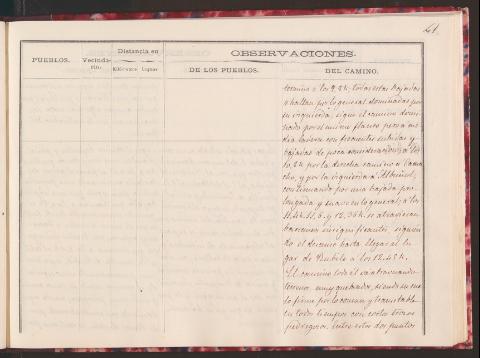 41.
PUEBLOS.
Vecindario.
Distancia en
Kilómetros
Leguas
OBSERVACIONES.
DE LOS PUEBLOS.
DEL CAMINO.
termina a los 9.2k; todas estas bajadas
se hallan por lo general dominadas por
su izquierda; sigue el camino domi-
nado por el mismo flanco pero a me-
dia ladera con frecuentes subidas y
bajadas de poca consideracion; a los
10,2k por la derecha camino a
y por la izquierda a Albuñol;
continuando por una bajada pro-
longada y suave en lo general; a los
11,4k, 11,6 y 12,36k se atraviesan
barrancos insignificantes, siguien-
do el descenso hasta llegar al lu-
gar de a los 12.45k.
El camino todo él va atravesando
terreno muy quebrado, siendo su sue-
lo firme por lo comun y transitable
en todo tiempo con cortos trozos
pedregosos, entre estos dos puntos